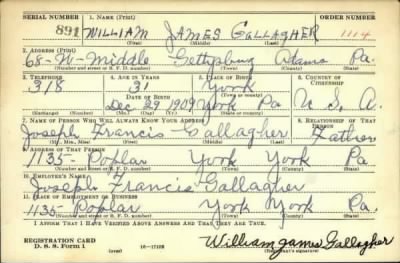 SERIAL NUMBER 1. NAME (Print) ORDER NUMBER
891 WILLIAM JAMES GALLAGHER 1114
(First) (Middle) (Last)
2. ADDRESS (Print)
68-W-Middle Gettysburg Adams Pa.
(Number and street or R. F. D. number) (Town) (County) (State)
3. TELEPHONE 4. AGE IN YEARS 5. PLACE OF BIRTH 6. COUNTRY OF CITIZENSHIP
318 31 York
DATE OF BIRTH (Town or county)
Dec 29 1909 York Pa U.S.A.
(Mo.) (Day) (Yr.) (State or country)
7. NAME OF PERSON WHO WILL ALWAYS KNOW YOUR ADDRESS 8. RELATIONSHIP OF THAT PERSON
Joseph Francis Gallagher Father
(Mr., Mrs., Miss) (First) (Middle) (Last)
9. ADDRESS OF THAT PERSON
1135- Poplar York York Pa
(Number and street or R. F. D. number) (Town) (County) (State)
10. EMPLOYER'S NAME
Joseph Francis Gallagher
11. PLACE OF EMPLOYMENT OR BUSINESS
1135- Poplar York York Pa.
(Number and street or R. F. D. number) (Town) (County) (State)
I AFFIRM THAT I HAVE VERIFIED ABOVE ANSWERS AND THAT THEY ARE TRUE.
REGISTRATION CARD
D. S. S. Form 1 (over) 16-17105 William James Gallagher
(Registrant's signature)